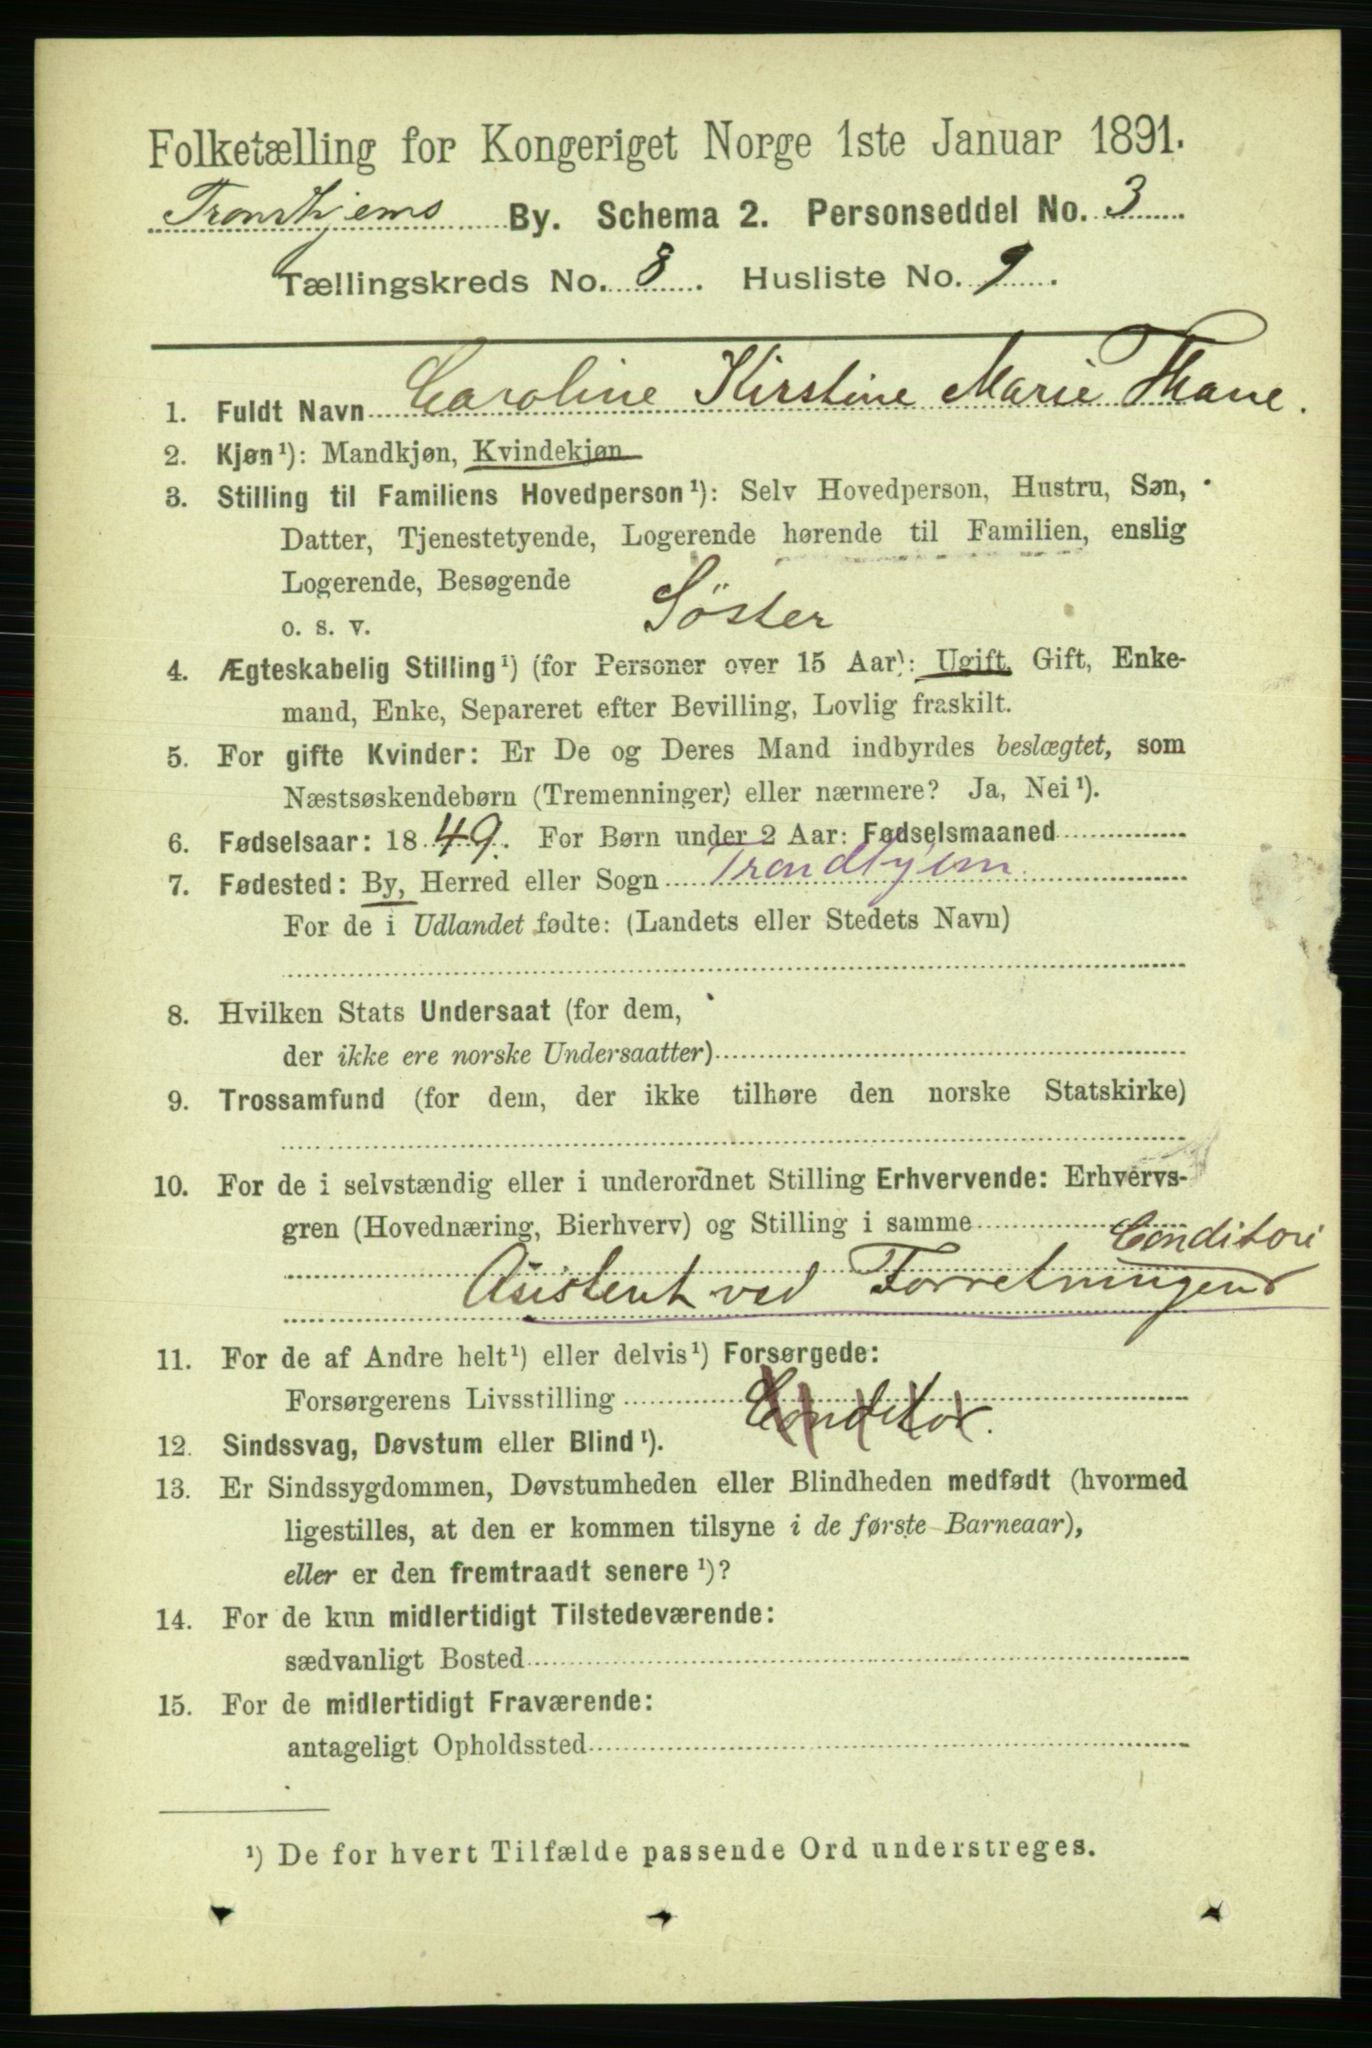 Folketælling for Kongeriget Norge 1ste Januar 1891.
Tronhjems By. Schema 2. Personseddel No. 3
Tællingskreds No. 8. Husliste No. 9.
1. Fuldt Navn Caroline Kirstine Marie Thane.
2. Kjøn¹): Mandkjøn, Kvindekjøn
3. Stilling til Familiens Hovedperson¹): Selv Hovedperson, Hustru, Søn,
Datter, Tjenestetyende, Logerende hørende til Familien, enslig
Logerende, Besøgende
o. s. v. Søster
4. Ægteskabelig Stilling¹) (for Personer over 15 Aar): Ugift, Gift, Enke-
mand, Enke, Separeret efter Bevilling, Lovlig fraskilt.
5. For gifte Kvinder: Er De og Deres Mand indbyrdes beslægtet, som
Næstsøskendebørn (Tremenninger) eller nærmere? Ja, Nei¹).
6. Fødselsaar: 1849. For Børn under 2 Aar: Fødselsmaaned
7. Fødested: By, Herred eller Sogn Trondhjem
For de i Udlandet fødte: (Landets eller Stedets Navn)
8. Hvilken Stats Undersaat (for dem,
der ikke ere norske Undersaatter)
9. Trossamfund (for dem, der ikke tilhøre den norske Statskirke)
10. For de i selvstændig eller i underordnet Stilling Erhvervende: Erhvervs-
gren (Hovednæring, Bierhverv) og Stilling i samme Conditori
Asistent ved Forretningen
11. For de af Andre helt¹) eller delvis¹) Forsørgede:
Forsørgerens Livsstilling Conditor.
12. Sindssvag, Døvstum eller Blind¹).
13. Er Sindssygdommen, Døvstumheden eller Blindheden medfødt (hvormed
ligestilles, at den er kommen tilsyne i de første Barneaar),
eller er den fremtraadt senere¹)?
14. For de kun midlertidigt Tilstedeværende:
sædvanligt Bosted
15. For de midlertidigt Fraværende:
antageligt Opholdssted
¹) De for hvert Tilfælde passende Ord understreges.